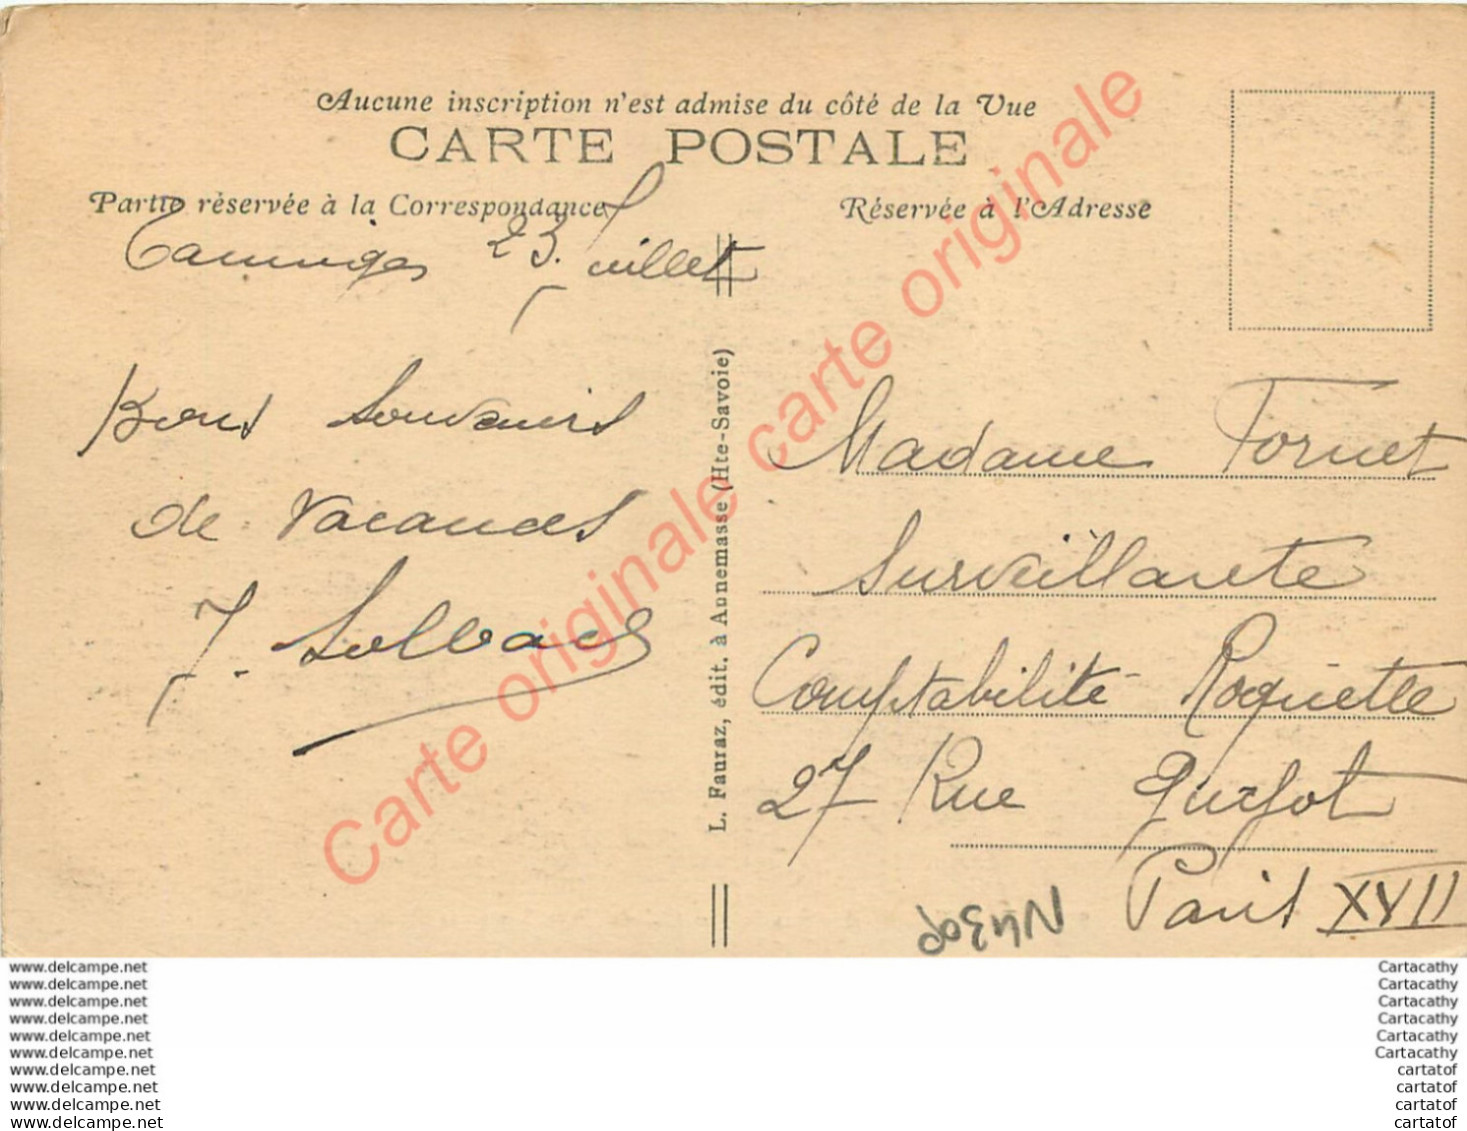 Aucune inscription n'est admise du côté de la Vue
CARTE POSTALE
Partie réservée à la Correspondance
Réservée à l'Adresse
Taninges 23 Juillet
Bons Souvenirs
de Vacances
J.
L. Fauraz, édit. à Annemasse (Hte-Savoie)
Madame Fornet
Surveillante
Comptabilité Roquette
27 Rue
Paris XVII
Carte originale carte originale
www.delcampe.net
www.delcampe.net
www.delcampe.net
www.delcampe.net
www.delcampe.net
www.delcampe.net
www.delcampe.net
www.delcampe.net
www.delcampe.net
www.delcampe.net
Cartacathy
Cartacathy
Cartacathy
Cartacathy
Cartacathy
Cartacathy
cartatof
cartatof
cartatof
cartatof